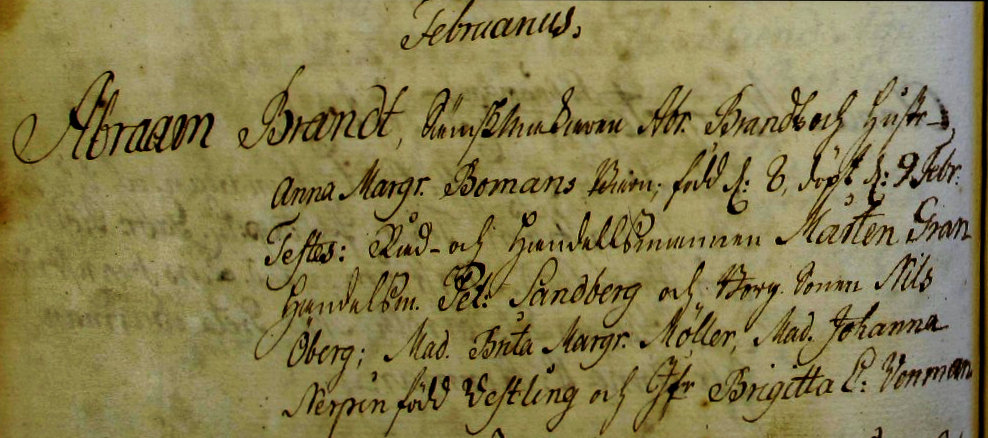 Februarius.
Abraam Brandt, Sämskmakaren Abr. Brandt och Hustr.
Anna Margr. Bomans Barn; född d: 8, döpt d: 9 Febr.
Testes: Råd- och Handelsmannen Mårten Gran
Handelsm. Pet: Sandberg och Borg. Sonen Nils
Öberg; Mad. Brita Margr. Möller, Mad. Johanna
Nerpin född Vestling och Jfr Brigitta C: Vonman